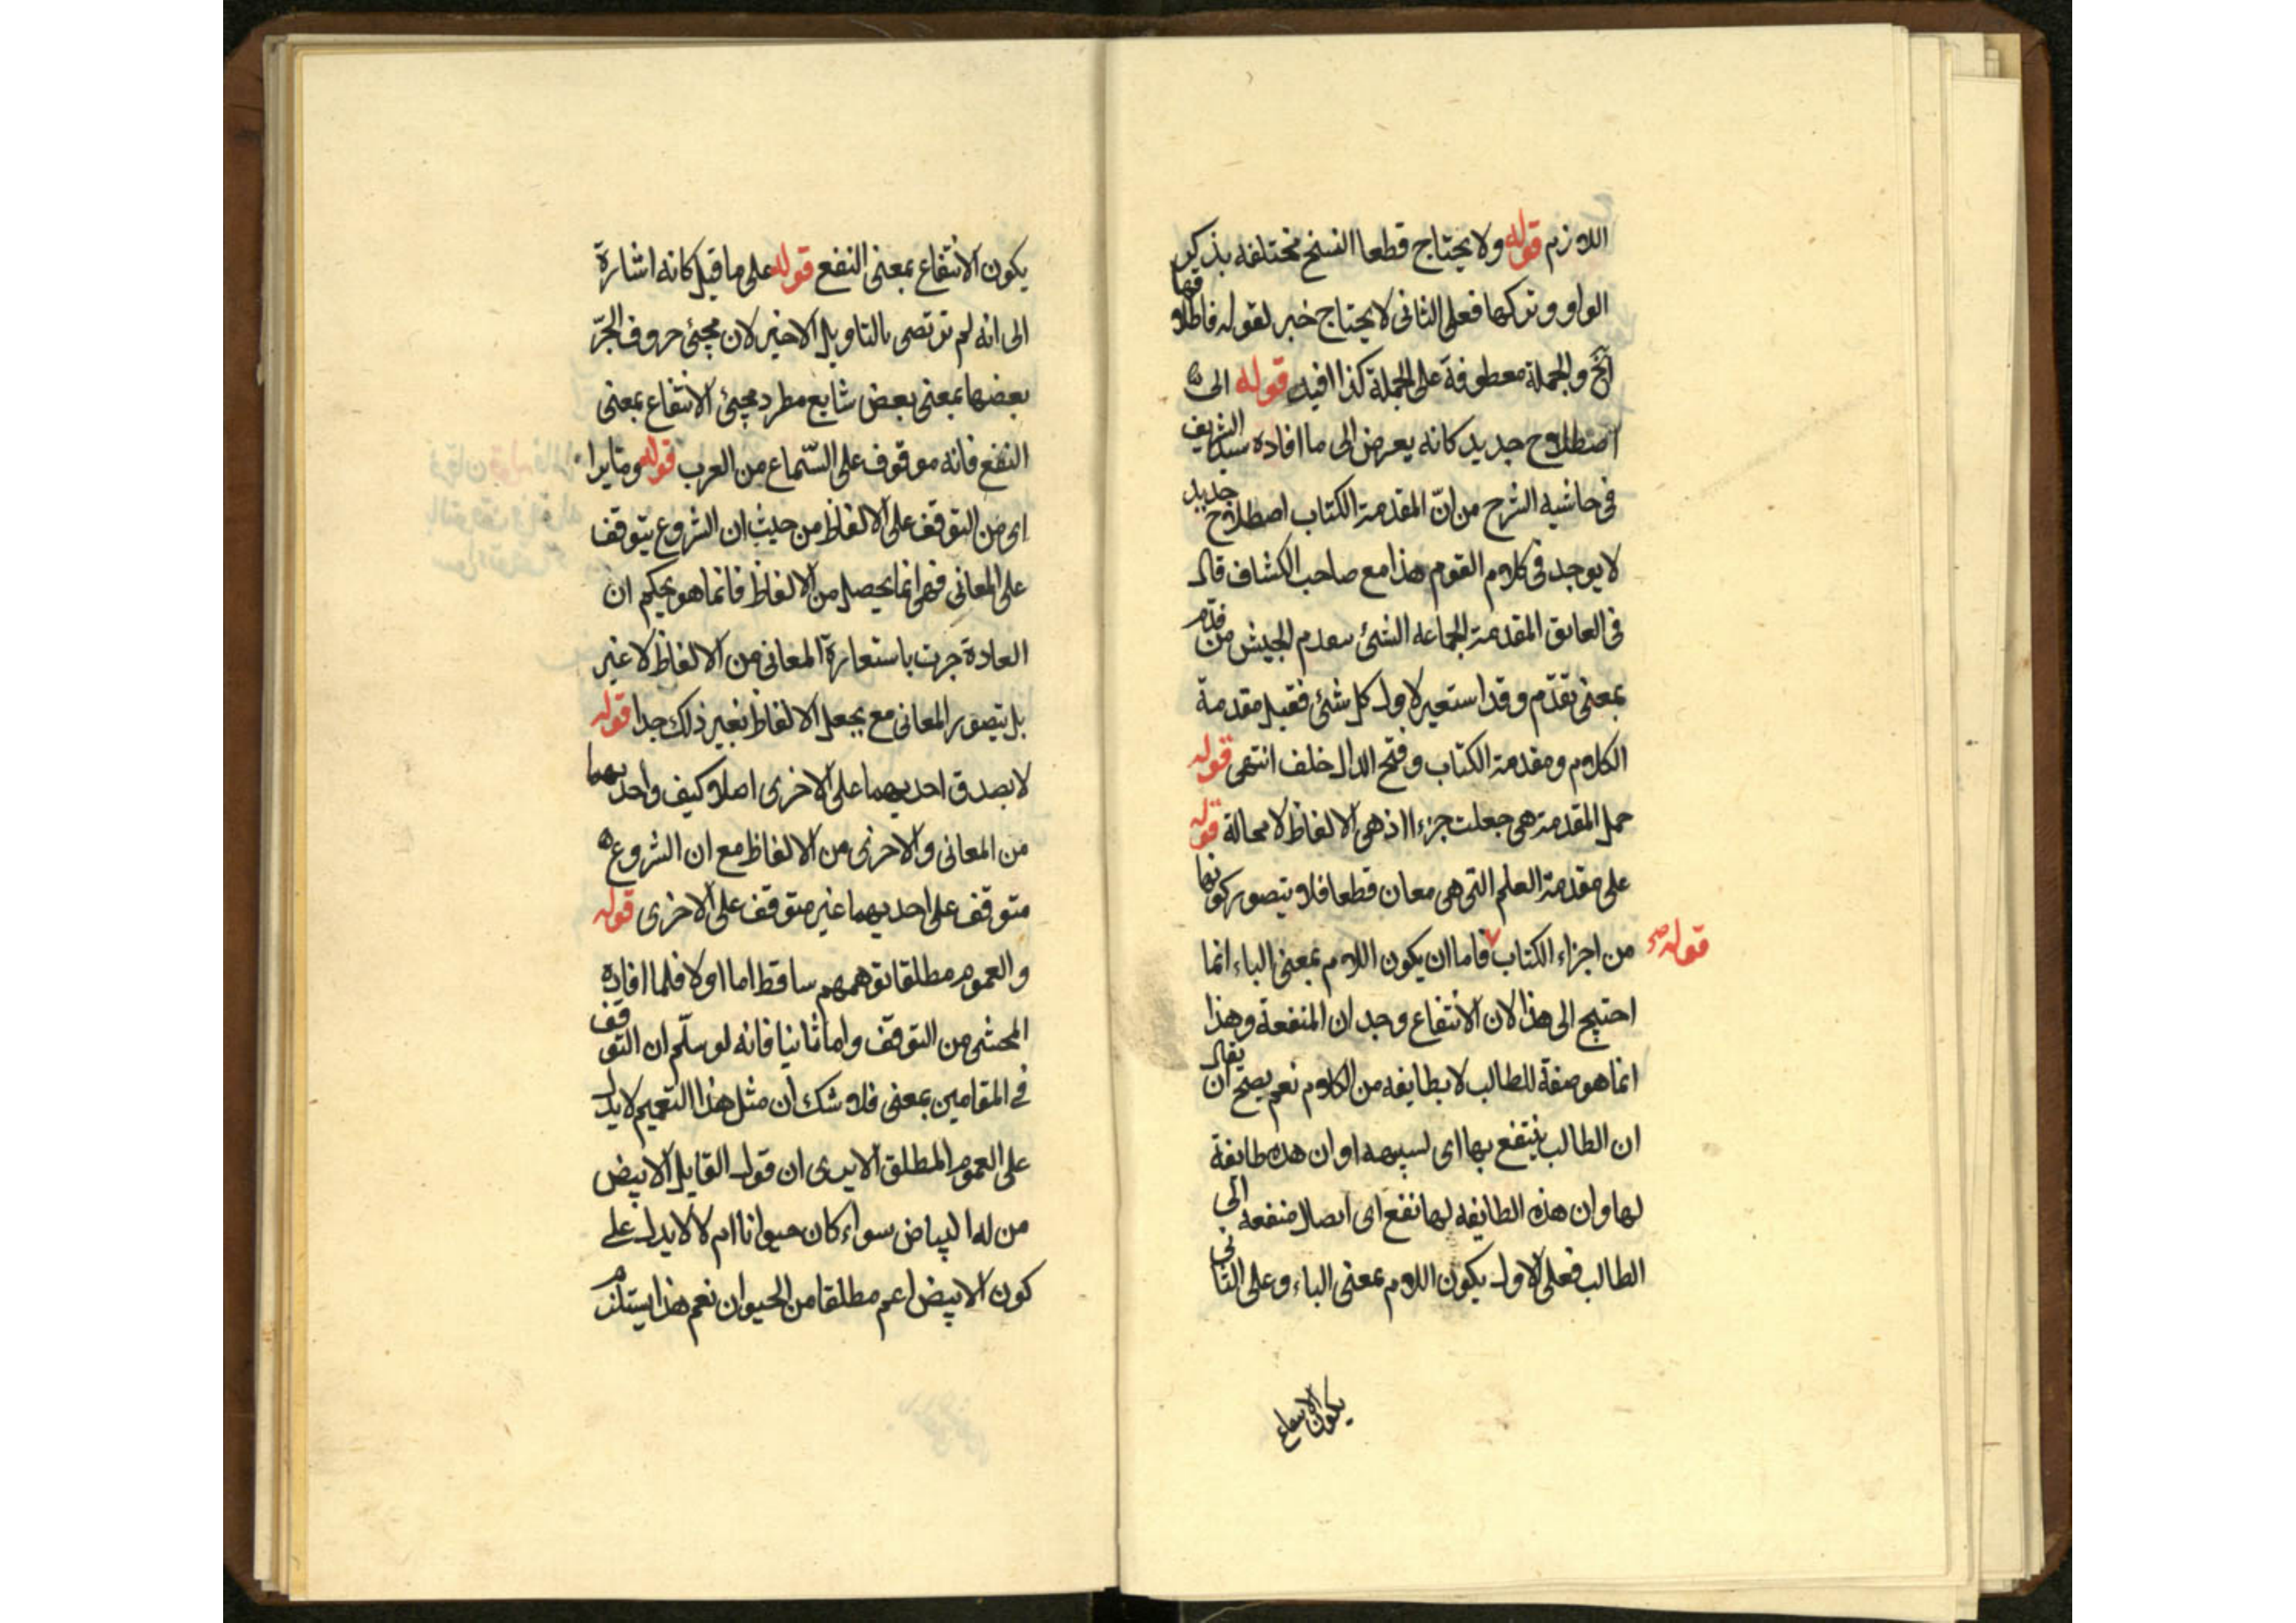 اللازم قوله ولا يحتاج قطعا النسخ مختلفه بذكر
الواو وتركها فعلى الثانى لا يحتاج خبر لقوله فاطلاقها
الخ والجملة معطوفة على الجملة كذا افيد قوله الى
اصطلاح جديد كانه يعرض الى ما افاده سيد الشريف
فى حاشيه الشرح من انّ المقدمة الكتاب اصطلاح جديد
لا يوجد فى كلام القوم هذا مع صاحب الكشاف قال
فى المقدمة الجماعه الشئ الجيش من قدّم
بمعنى تقدّم وقد استعير لاول كل شئ فقيل مقدمة
الكلام ومقدمة الكتاب وفتح الدال خلف انتهى قوله
حمل المقدمة هى جعلت جزءا اذ هى الالفاظ لا محالة قوله
على مقدمة العلم التى هى معان قطعا فلا يتصور كونها
من اجزاء الكتاب فاما ان يكون اللام بمعنى الباء انما
قوله صح
احتيج الى هذا لان الانتفاع وجدان المنفعة وهذا
انما هو صفة للطالب لا بطايفه من الكلام نعم يصح ان يقال
ان الطالب ينتفع بها اى او ان هذه طايفة
لها وان هذه الطايفه لها نفع اى ايصال منفعه الى
الطالب فعلى الاول يكون اللام بمعنى الباء وعلى الثانى
يكون الانتفاع
يكون الانتفاع بمعنى النفع قوله على ما قيل كانه اشارة
الى انه لم بالتاويل الاخير لان مجيئ حروف الجرّ
بعضها بمعنى بعض شايع مطرد مجيئ الانتفاع بمعنى
النفع فانه موقوف على السّماع من العرب قوله
اى من التوقف على الالفاظ من حيث ان الشروع يتوقف
على المعانى فهى انما يحصل من الالفاظ فانما هو بحكم ان
العادة جرت باستعارة المعانى من الالفاظ لا غير
بل يتصور المعانى مع بجعل الالفاظ بغير ذلك جدا قوله
لا يصدق احديهما على الاخرى اصلا كيف واحديهما
من المعانى والاخرى من الالفاظ مع ان الشروع
متوقف على احديهما غير متوقف على الاخرى قوله
والعموم مطلقا توهمهم ساقط اما اولا فلما افاده
المحشى من التوقف واما ثانيا فانه لو سلّم ان التوقف
فى المقامين بمعنى فلا شك ان مثل هذا التعميم لا يدل
على العموم المطلق الا يرى ان قول القايل الابيض
من له البياض سواء كان حيوانا ام لا لا يدل على
كون الابيض اعم مطلقا من الحيوان نعم هذا يستلزم